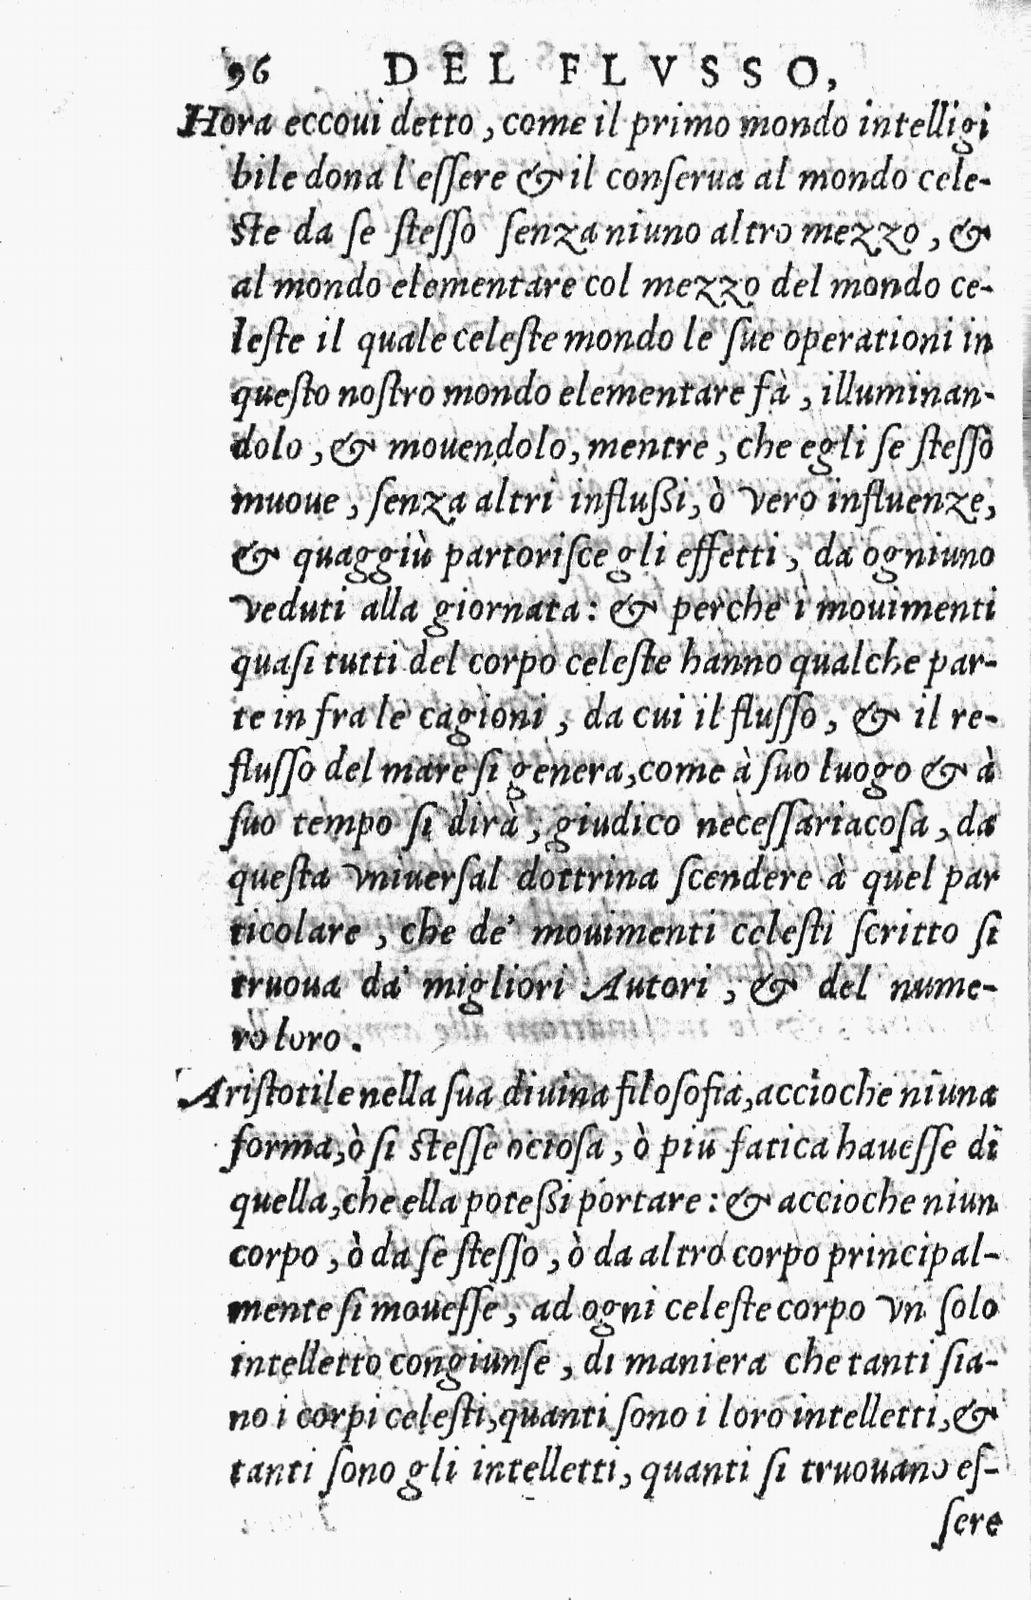 96 DEL FLVSSO,
Hora eccoui detto, come il primo mondo intelligi
bile dona l'eſſere & il conſerua al mondo cele-
ſte da ſe ſteſſo ſenza niuno altro mezzo, &
al mondo elementare col mezzo del mondo ce-
leſte il quale celeſte mondo le ſue operationi in
queſto noſtro mondo elementare fà, illuminan-
dolo, & mouendolo, mentre, che egli ſe ſteſſo
muoue, ſenza altri influßi, ò vero influenze,
& quaggiù partoriſce gli effetti, da ogniuno
veduti alla giornata: & perche i mouimenti
quaſi tutti del corpo celeſte hanno qualche par-
te in fra le cagioni, da cui il fluſſo, & il re-
fluſſo del mare ſi genera, come à ſuo luogo & à
ſuo tempo ſi dirà, giudico neceſſaria coſa, da
queſta vniuerſal dottrina ſcendere à quel par
ticolare, che de' mouimenti celeſti ſcritto ſi
truoua da' migliori Autori, & del nume-
ro loro.
Ariſtotile nella ſua diuina filoſofia, accioche niuna
forma, ò ſi ſteſſe ocioſa, ò piu fatica haueſſe di
quella, che ella poteßi portare: & accioche niun
corpo, ò da ſe ſteſſo, ò da altro corpo principal-
mente ſi moueſſe, ad ogni celeſte corpo vn ſolo
intelletto congiunſe, di maniera che tanti ſia-
no i corpi celeſti, quanti ſono i loro intelletti, &
tanti ſono gli intelletti, quanti ſi truouano eſ-
ſere